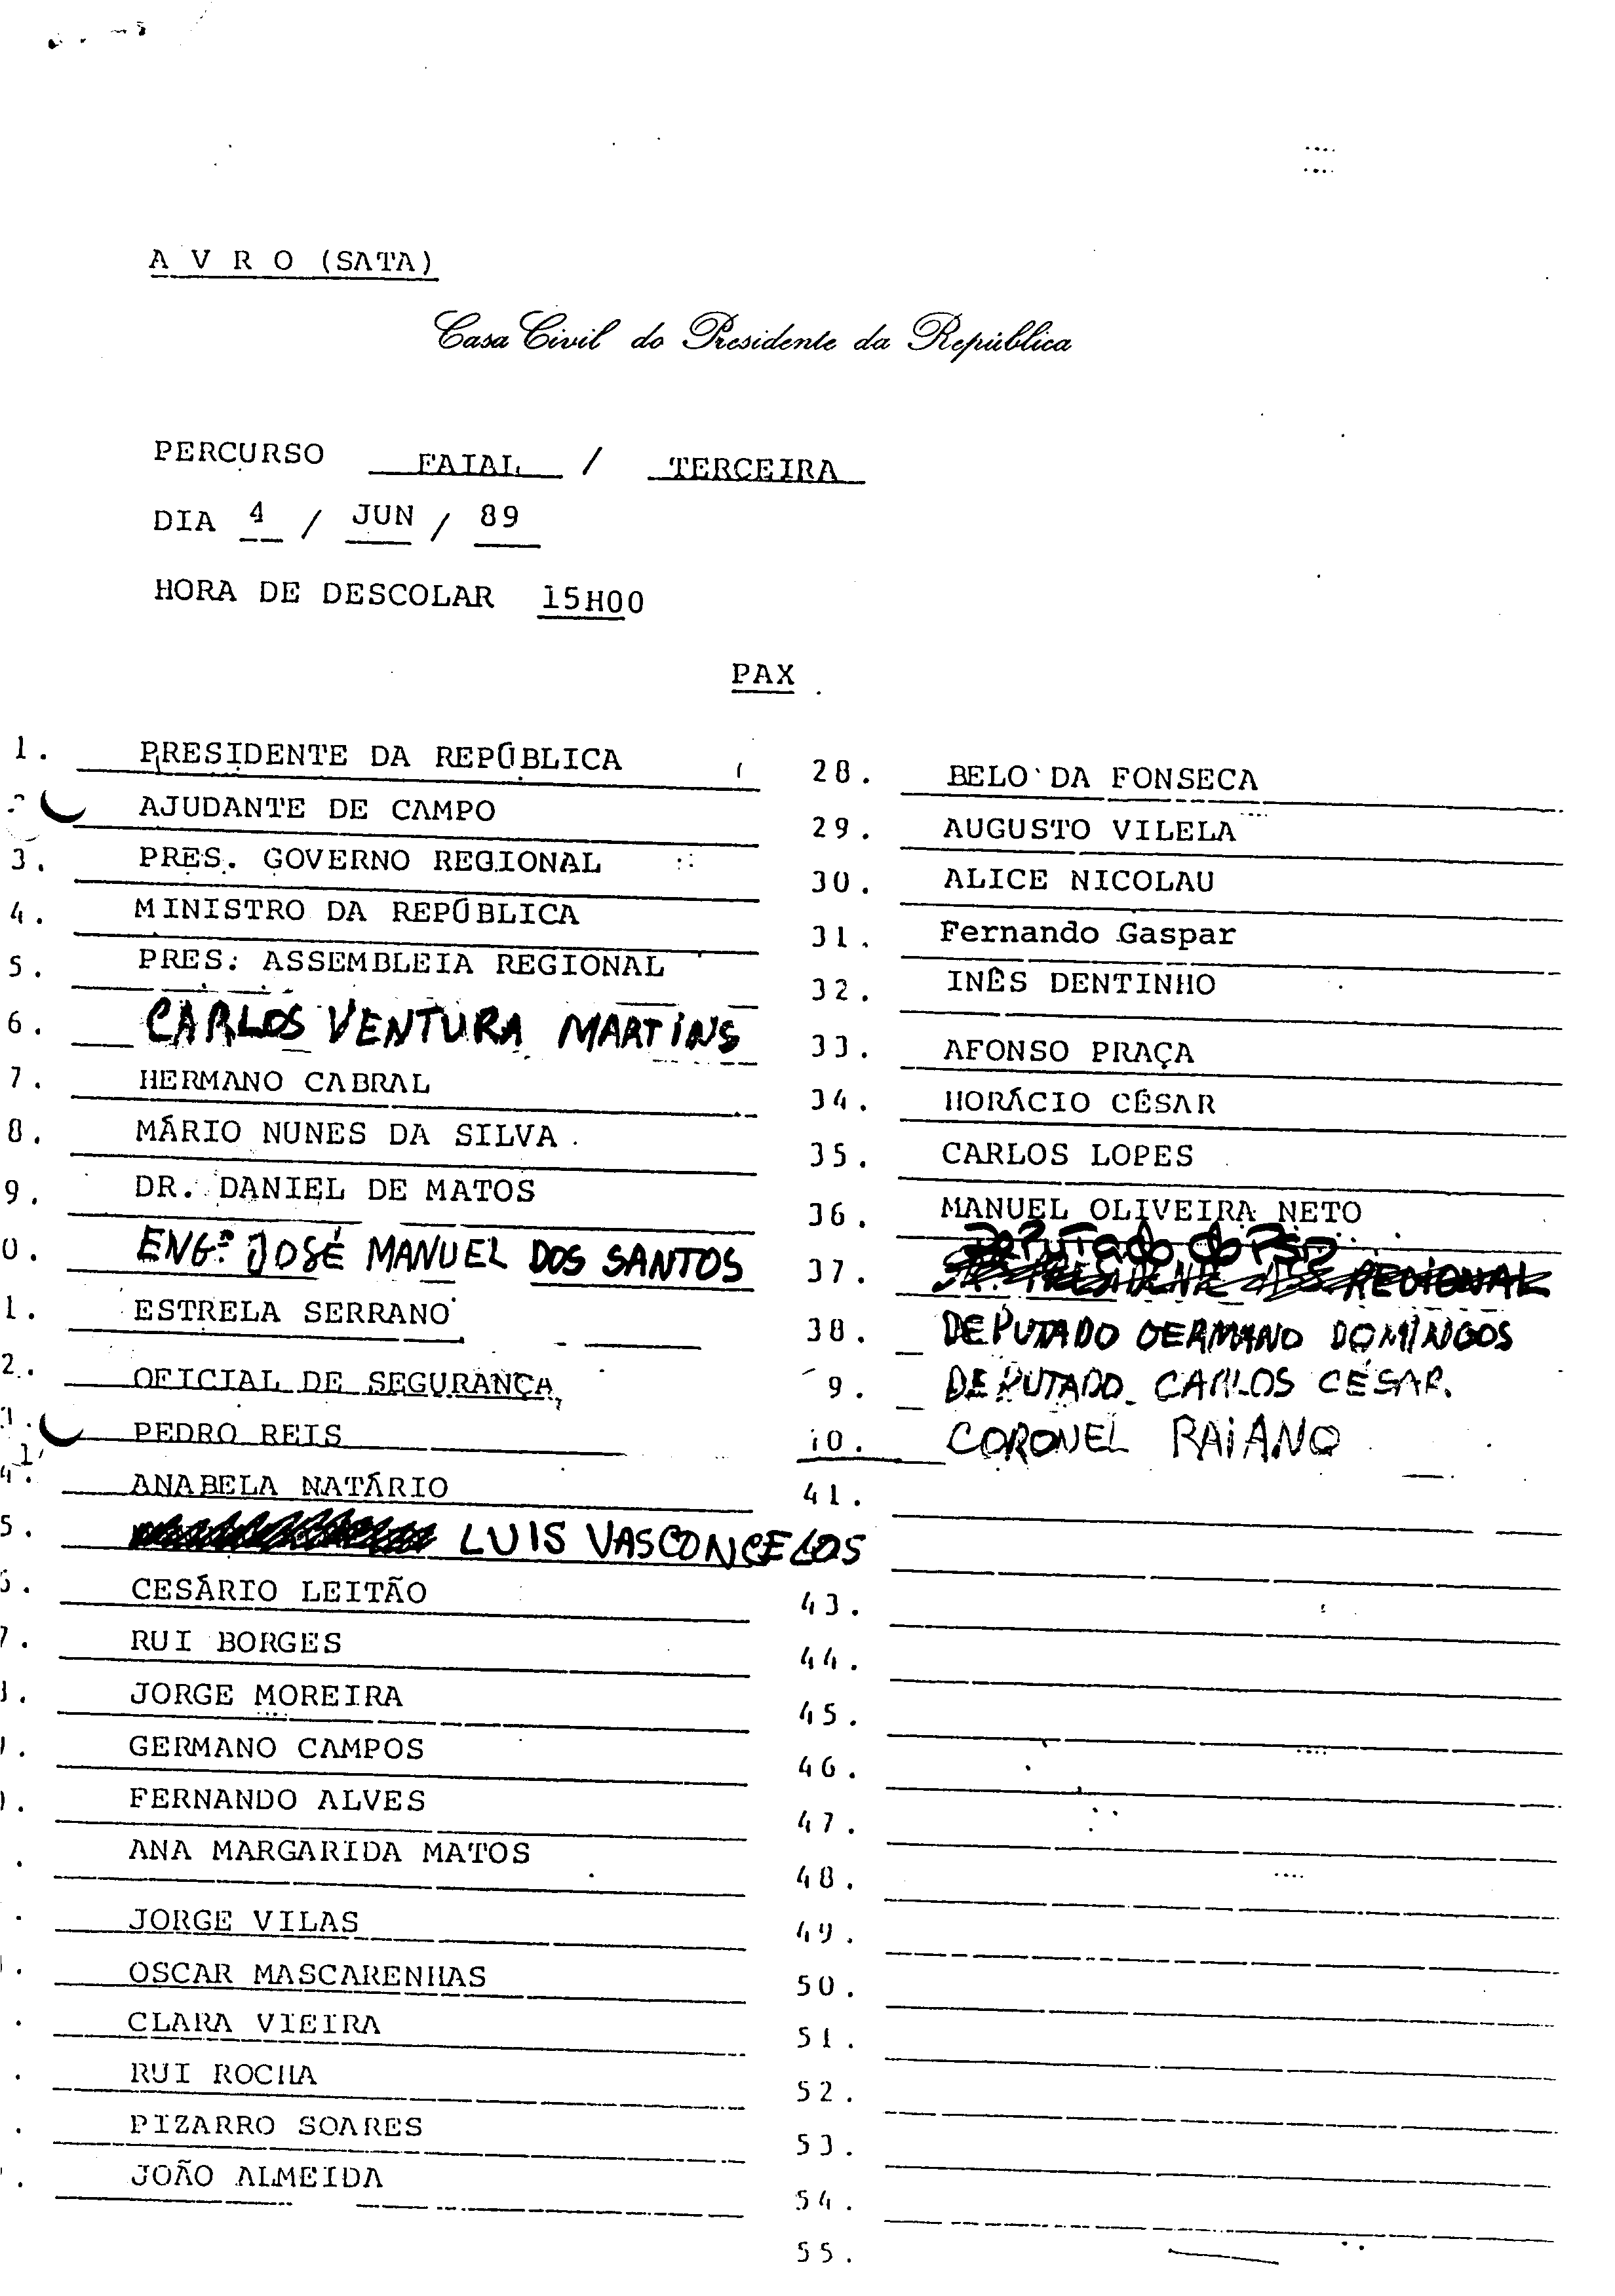 A V R O (SATA)
Casa Civil do Presidente da República
PERCURSO FAIAL / TERCEIRA
DIA 4 / JUN / 89
HORA DE DESCOLAR 15H00
PAX
1. PRESIDENTE DA REPÚBLICA
AJUDANTE DE CAMPO
3. PRES. GOVERNO REGIONAL
4. MINISTRO DA REPÚBLICA
5. PRES. ASSEMBLEIA REGIONAL
6. CARLOS VENTURA MARTINS
7. HERMANO CABRAL
8. MÁRIO NUNES DA SILVA
9. DR. DANIEL DE MATOS
0. ENGº JOSÉ MANUEL DOS SANTOS
1. ESTRELA SERRANO
2. OFICIAL DE SEGURANÇA
PEDRO REIS
4. ANABELA NATÁRIO
5. LUIS VASCONCELOS
CESÁRIO LEITÃO
7. RUI BORGES
JORGE MOREIRA
GERMANO CAMPOS
FERNANDO ALVES
ANA MARGARIDA MATOS
JORGE VILAS
OSCAR MASCARENHAS
CLARA VIEIRA
RUI ROCHA
PIZARRO SOARES
JOÃO ALMEIDA
28. BELO DA FONSECA
29. AUGUSTO VILELA
30. ALICE NICOLAU
31. Fernando Gaspar
32. INÊS DENTINHO
33. AFONSO PRAÇA
34. HORÁCIO CÉSAR
35. CARLOS LOPES
36. MANUEL OLIVEIRA NETO
Deputado do PSD
37. REGIONAL
38. DEPUTADO GERMANO DOMINGOS
9. DEPUTADO CARLOS CÉSAR.
0. CORONEL RAIANO
41.
43.
44.
45.
46.
47.
48.
49.
50.
51.
52.
53.
54.
55.